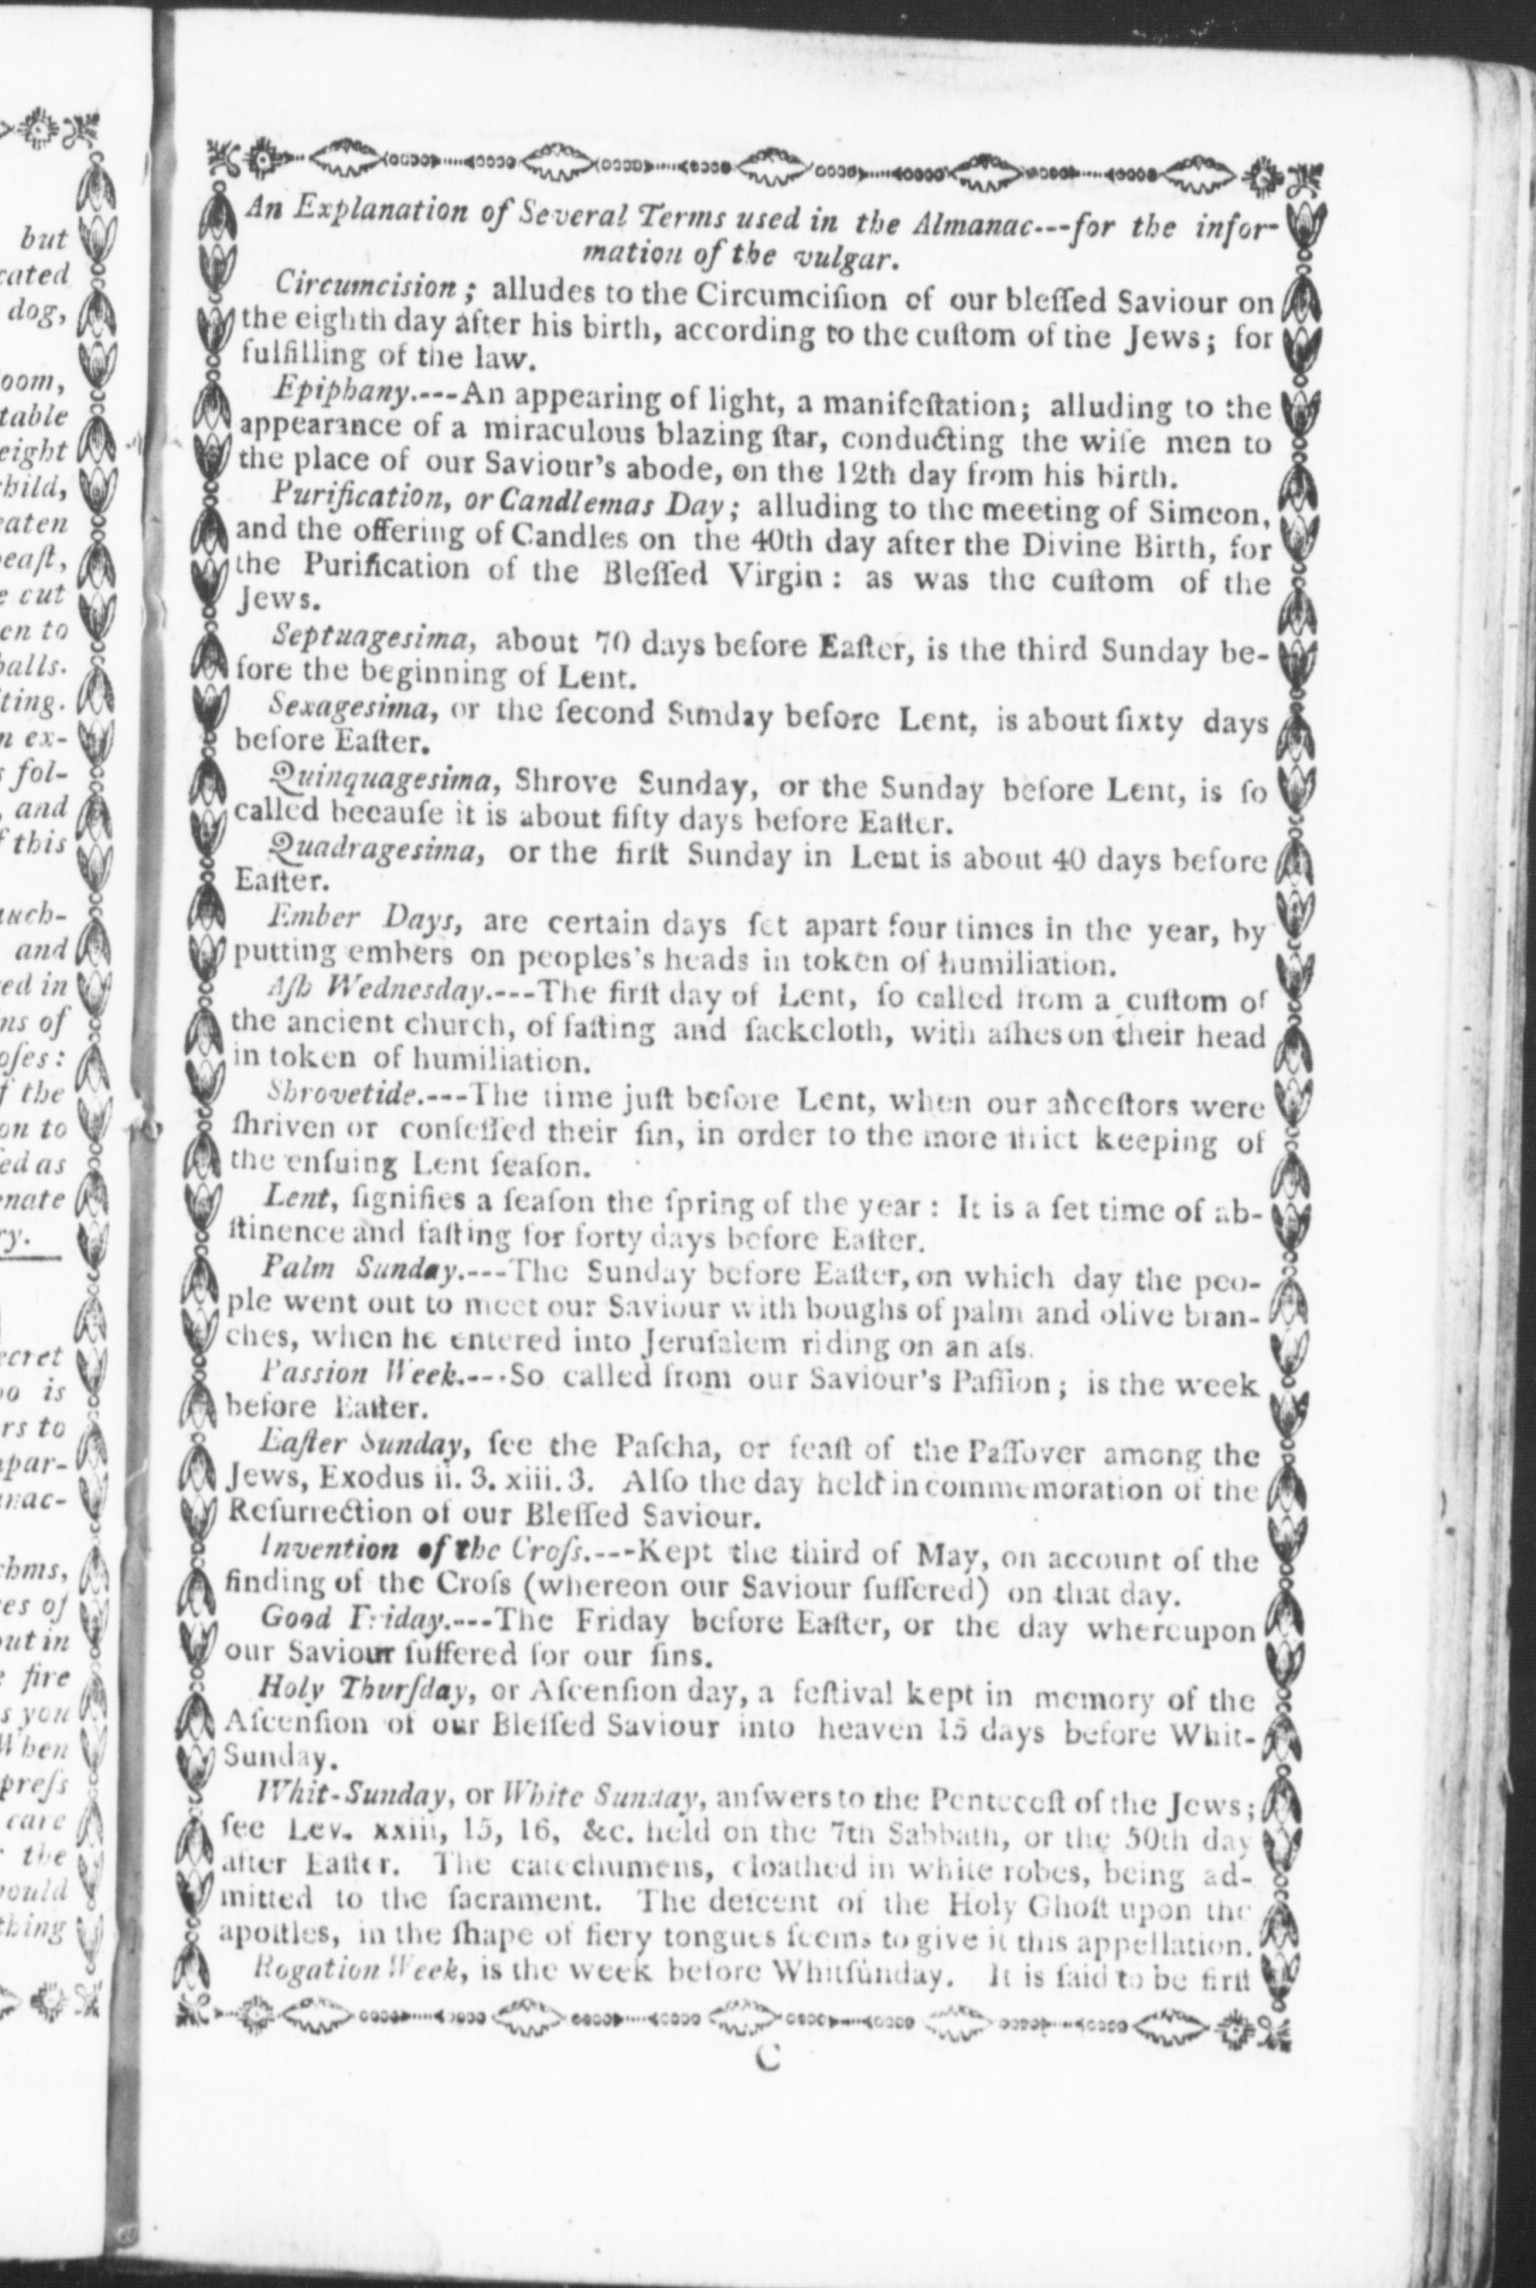 but
cated
dog,
oom,
table
eight
child,
eaten
beaſt,
e cut
en to
balls.
ting.
n ex-
s fol-
, and
f this
and
ed in
ns of
oſes:
f the
on to
ed as
enate
ry.
ecret
oo is
rs to
par-
nac-
hms,
es of
out in
e fire
s you
When
preſs
care
r the
would
thing
An Explanation of Several Terms used in the Almanac---for the infor-
mation of the vulgar.
Circumcision; alludes to the Circumciſion of our bleſſed Saviour on
the eighth day after his birth, according to the cuſtom of the Jews; for
fulfilling of the law.
Epiphany.---An appearing of light, a manifeſtation; alluding to the
appearance of a miraculous blazing ſtar, conducting the wiſe men to
the place of our Saviour's abode, on the 12th day from his birth.
Purification, or Candlemas Day; alluding to the meeting of Simeon,
and the offering of Candles on the 40th day after the Divine Birth, for
the Purification of the Bleſſed Virgin: as was the cuſtom of the
Jews.
Septuagesima, about 70 days before Eaſter, is the third Sunday be-
fore the beginning of Lent.
Sexagesima, or the ſecond Sunday before Lent, is about ſixty days
before Eaſter.
Quinquagesima, Shrove Sunday, or the Sunday before Lent, is ſo
called becauſe it is about fifty days before Eaſter.
Quadragesima, or the firſt Sunday in Lent is about 40 days before
Eaſter.
Ember Days, are certain days ſet apart four times in the year, by
putting embers on peoples's heads in token of humiliation.
Aſh Wednesday.---The firſt day of Lent, ſo called from a cuſtom of
the ancient church, of faſting and ſackcloth, with aſhes on their head
in token of humiliation.
Shrovetide.---The time juſt before Lent, when our anceſtors were
ſhriven or confeſſed their ſin, in order to the more ſtrict keeping of
the enſuing Lent ſeaſon.
Lent, ſignifies a ſeaſon the ſpring of the year: It is a ſet time of ab-
ſtinence and faſting for forty days before Eaſter.
Palm Sunday.---The Sunday before Eaſter, on which day the peo-
ple went out to meet our Saviour with boughs of palm and olive bran-
ches, when he entered into Jeruſalem riding on an aſs.
Passion Week.---So called from our Saviour's Paſſion; is the week
before Eaſter.
Eaſter Sunday, ſee the Paſcha, or feaſt of the Paſſover among the
Jews, Exodus ii. 3. xiii. 3. Alſo the day held in commemoration of the
Reſurrection of our Bleſſed Saviour.
Invention of the Croſs.---Kept the third of May, on account of the
finding of the Croſs (whereon our Saviour ſuffered) on that day.
Good Friday.---The Friday before Eaſter, or the day whereupon
our Saviour ſuffered for our ſins.
Holy Thurſday, or Aſcenſion day, a feſtival kept in memory of the
Aſcenſion of our Bleſſed Saviour into heaven 15 days before Whit-
Sunday.
Whit-Sunday, or White Sunday, anſwers to the Pentecoſt of the Jews;
ſee Lev. xxiii, 15, 16, &c. held on the 7th Sabbath, or the 50th day
after Eaſter. The catechumens, cloathed in white robes, being ad-
mitted to the ſacrament. The deſcent of the Holy Ghoſt upon the
apoſtles, in the ſhape of fiery tongues ſeems to give it this appellation.
Rogation Week, is the week before Whitſunday. It is ſaid to be firſt
C